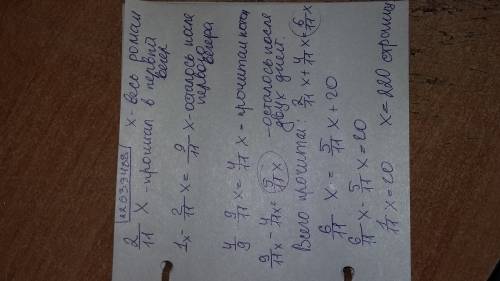 22537488
2/11 x - прочитал в первый вечер
x - весь роман
1x - 2/11 x = 9/11 x - осталось после первого вечера
4/9 · 9/11 x = 4/11 x = прочитал
9/11 x - 4/11 x = 5/11 x - осталось после двух дней.
Всего прочитал: 2/11 x + 4/11 x = 6/11 x
6/11 x = 5/11 x + 20
6/11 x - 5/11 x = 20
1/11 x = 20 x = 220 страниц